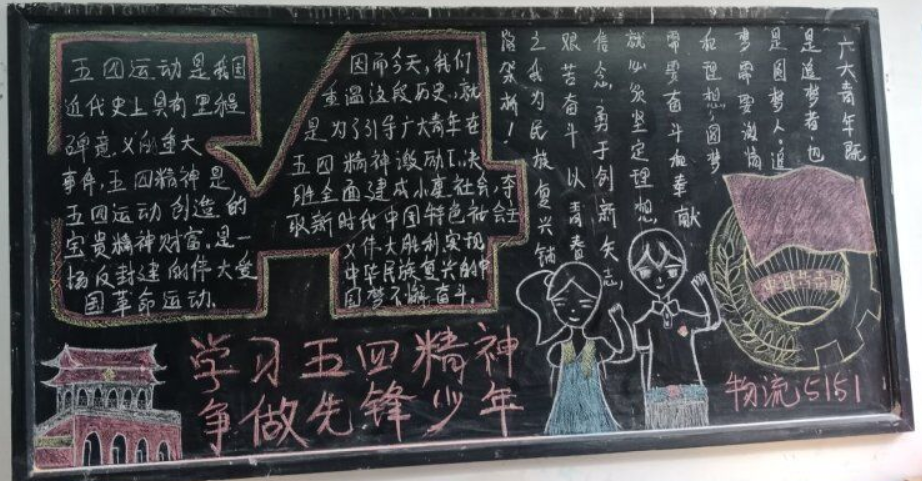 五四运动是我国
近代史上具有里程
碑意义的重大
事件,五四精神是
五四运动创造的
宝贵精神财富。是一
场反封建的伟大爱
国革命运动.
因而今天,我们
重温这段历史,就
是为了引导广大青年在
五四精神激励下,决
胜全面建成小康社会,夺
取新时代中国特色社会主
义伟大胜利实现
中华民族复兴的中
国梦不懈奋斗.
广大青年既
是追梦者也
是圆梦人.追
梦需要激情
和理想,圆梦
需要奋斗和奉献
就必须坚定理想
信念,勇于创新矢志,
艰苦奋斗以青春
之我为民族复兴铺
路架桥!
学习五四精神
争做先锋少年
中国共青团
物流5151